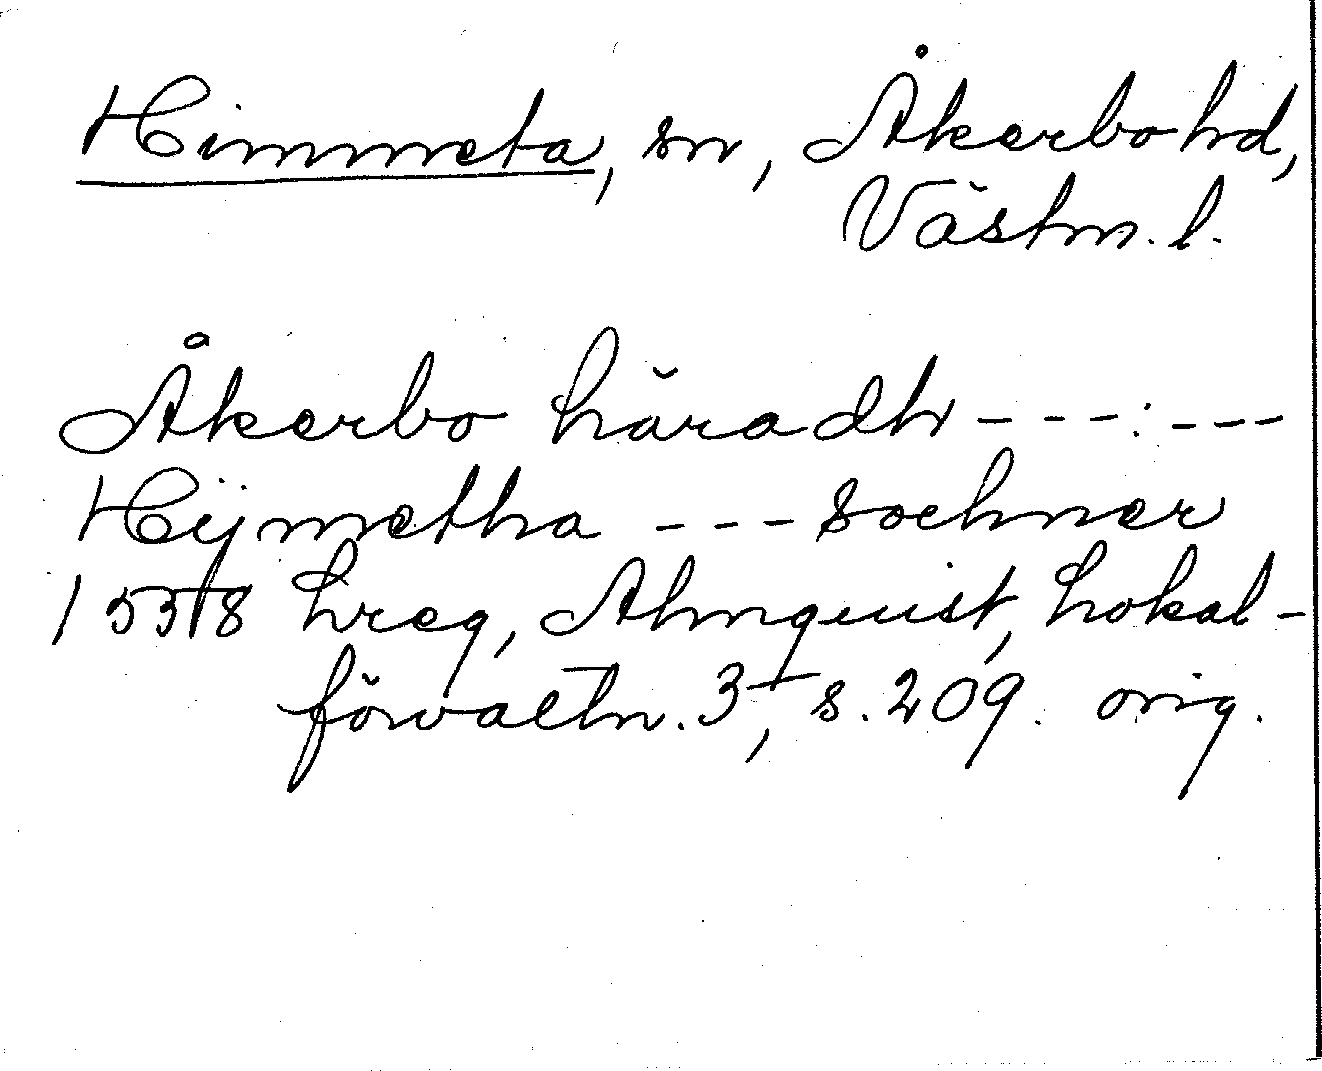 Himmeta, sn, Åkerbo hd,
Västm. l.
Åkerbo häradh - - - : - - -
Hijmetha - - - sochner
1538 Lreg, Almquist, Lokal-
förvaltn. 3, s. 209. orig.